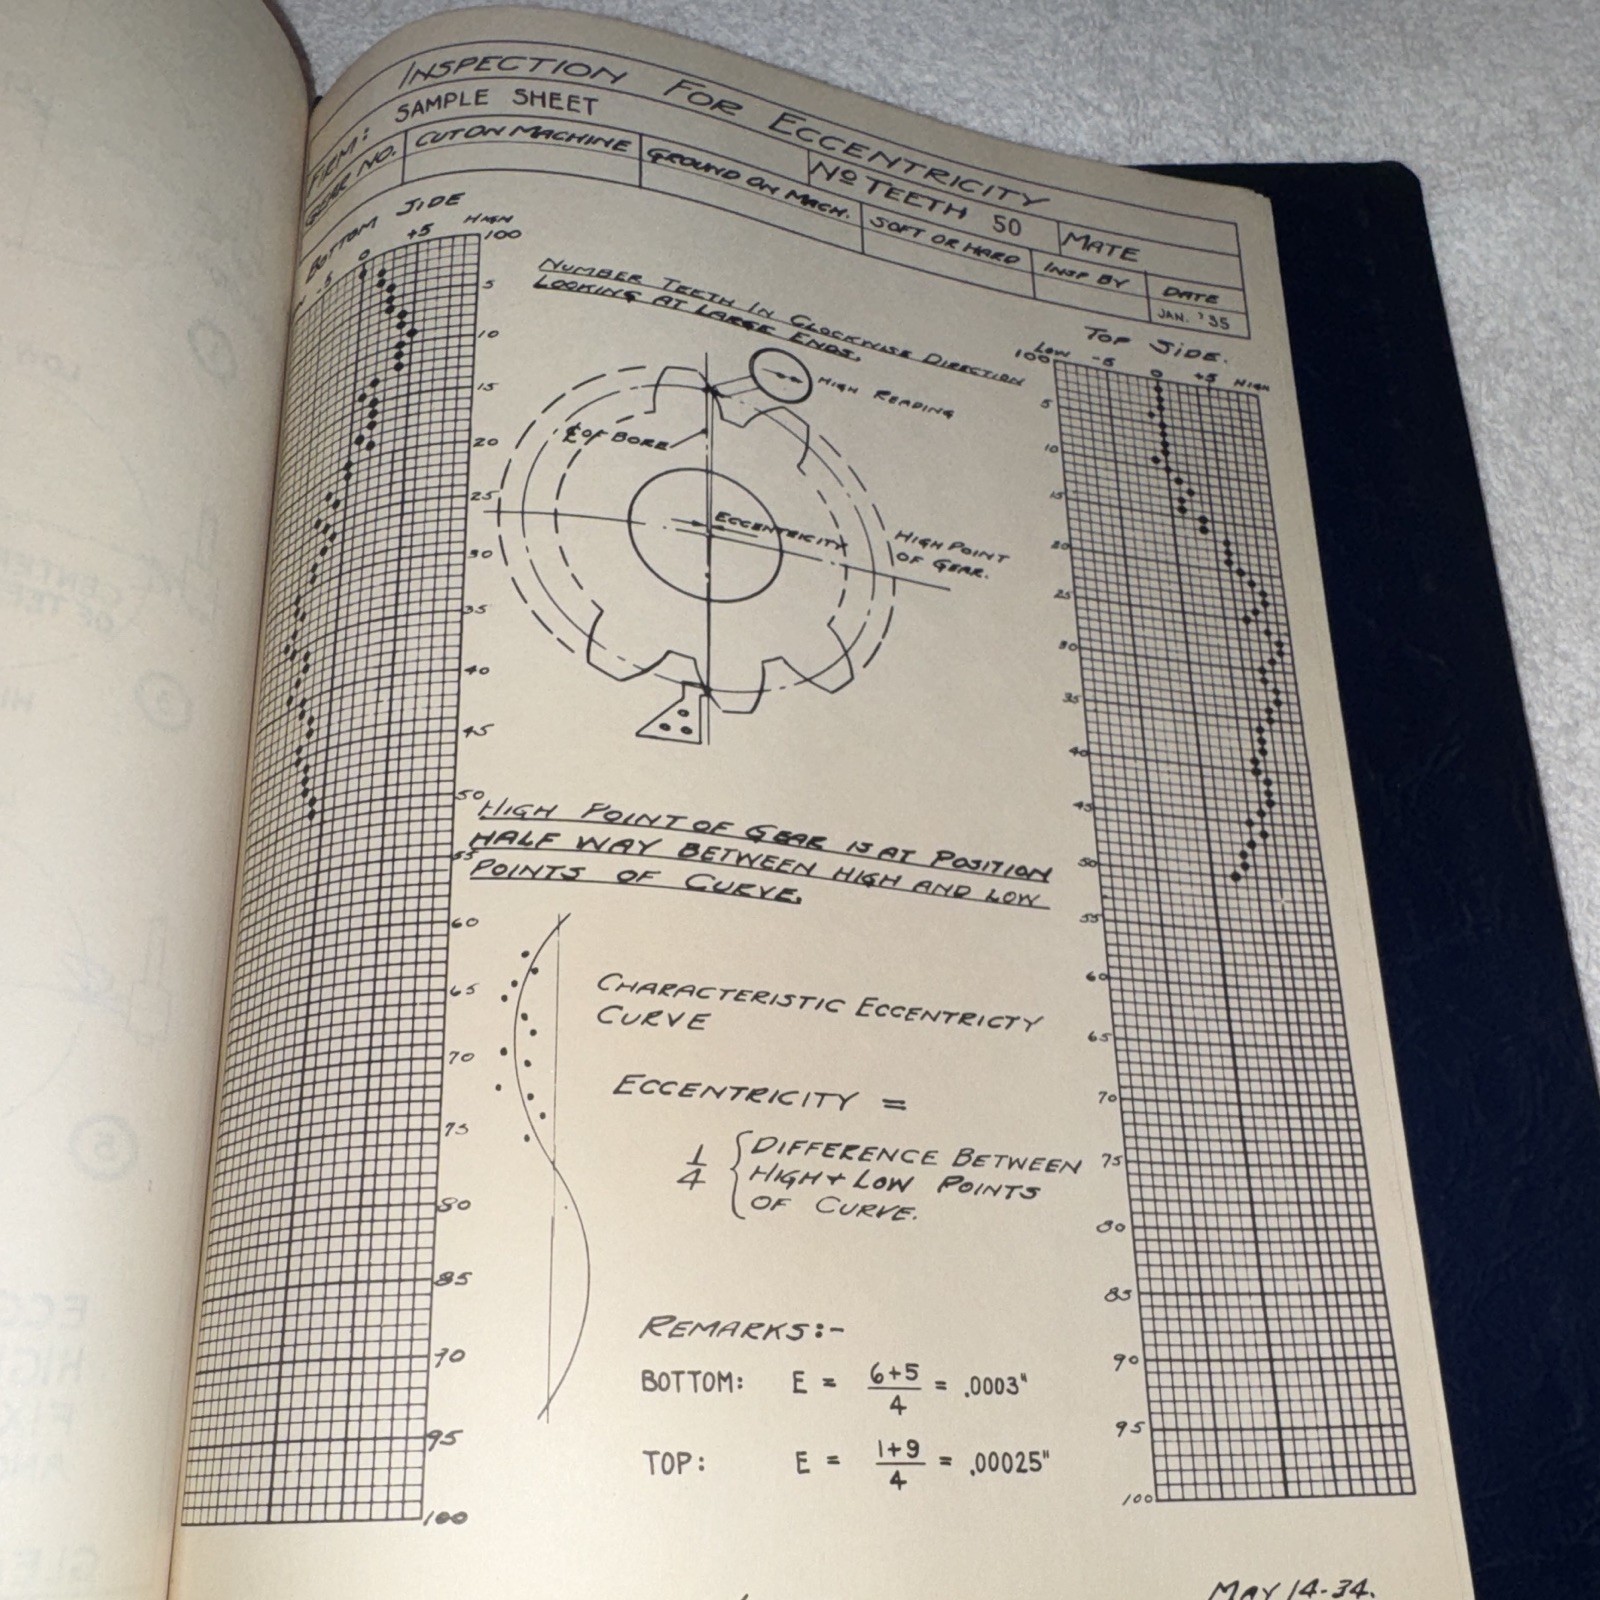 INSPECTION FOR ECCENTRICITY
FIRM: SAMPLE SHEET
No TEETH 50
MATE
GEAR NO.
CUT ON MACHINE
GROUND ON MACH.
SOFT OR HARD
INSP BY
DATE
JAN. '35
BOTTOM SIDE
-5 0 +5 HIGH
100
5
10
15
20
25
30
35
40
45
50
55
60
65
70
75
80
85
90
95
100
NUMBER TEETH IN CLOCKWISE DIRECTION
LOOKING AT LARGE ENDS.
HIGH READING
℄ OF BORE
ECCENTRICITY
HIGH POINT
OF GEAR.
HIGH POINT OF GEAR IS AT POSITION
HALF WAY BETWEEN HIGH AND LOW
POINTS OF CURVE.
CHARACTERISTIC ECCENTRICTY
CURVE
ECCENTRICITY =
1/4 { DIFFERENCE BETWEEN
HIGH + LOW POINTS
OF CURVE.
REMARKS:-
BOTTOM: E = 6+5/4 = .0003"
TOP: E = 1+9/4 = .00025"
TOP SIDE.
LOW -5 0 +5 HIGH
100
5
10
15
20
25
30
35
40
45
50
55
60
65
70
75
80
85
90
95
100
MAY 14-34.